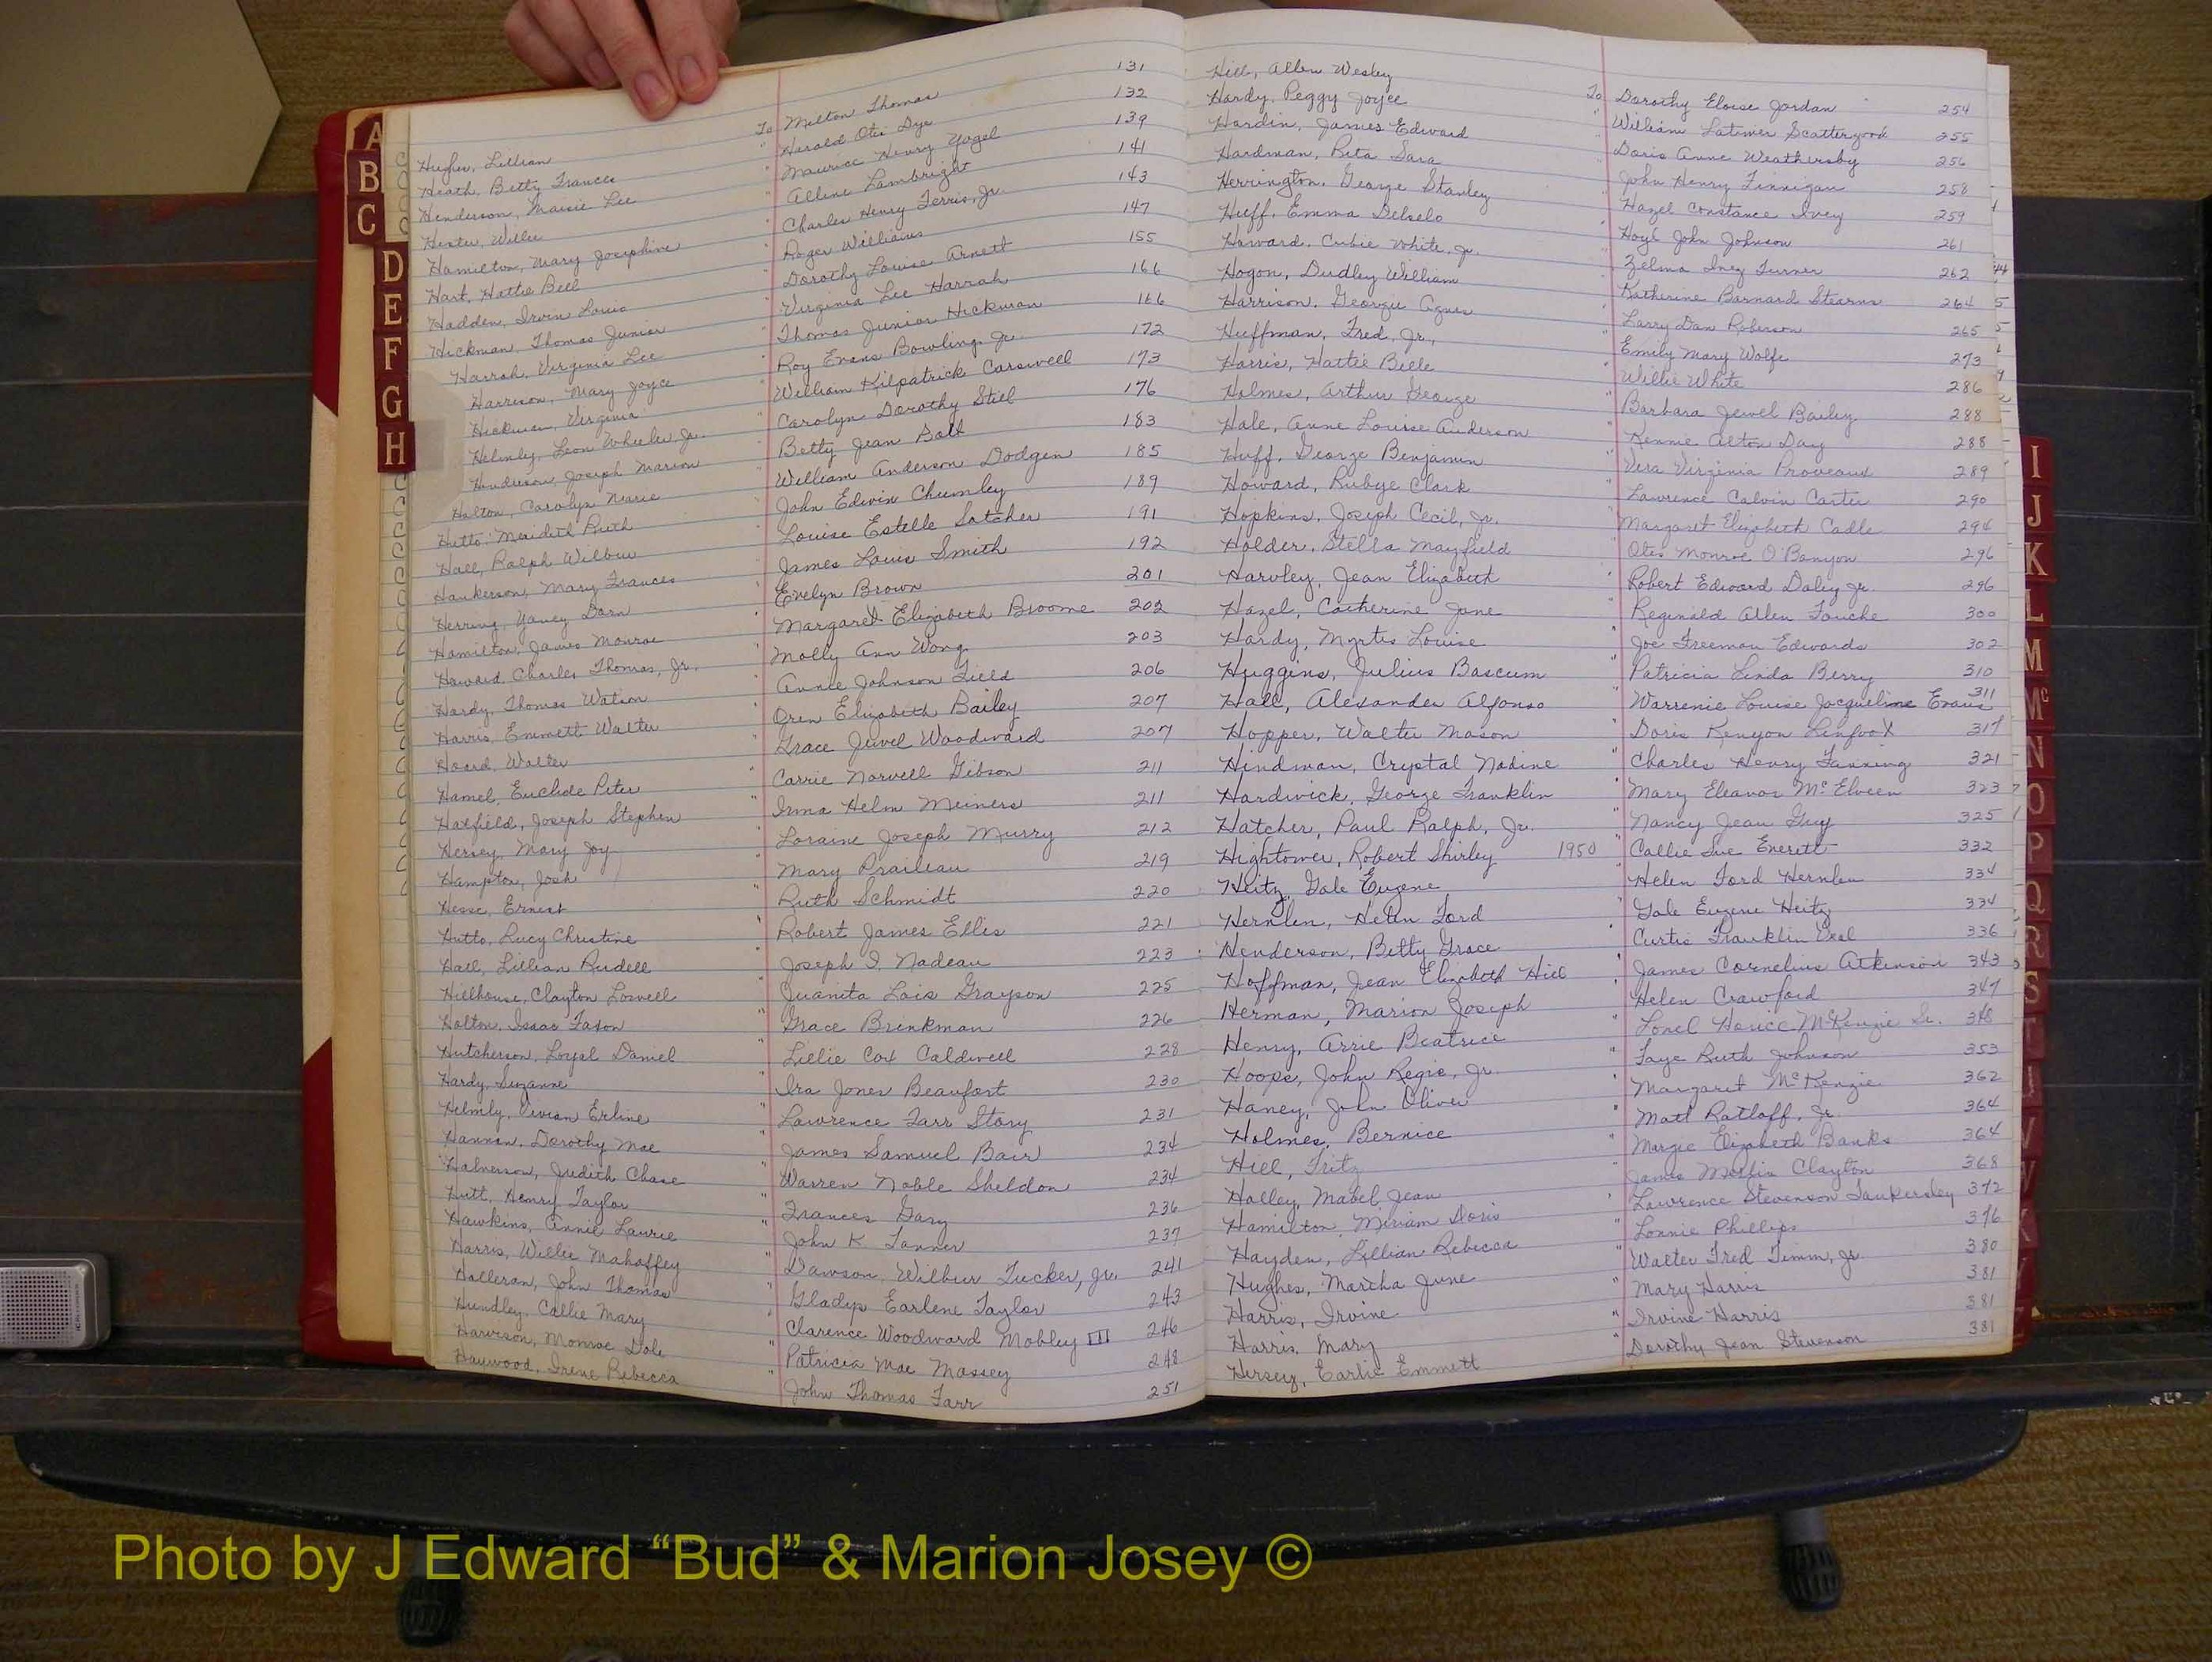 Hughes, Lillian To Milton Thomas 131
Heath, Betty Frances " Harold Otis Dye 132
Henderson, Maisie Lee " Maurice Henry Yogel 139
Hester, Willie " Allene Lambright 141
Hamilton, Mary Josephine " Charles Henry Ferris, Jr. 143
Hart, Hattie Bell " Roger Williams 147
Hadden, Irvin Louis " Dorothy Louise Arnett 155
Hickman, Thomas Junior " Virginia Lee Harrah 166
Harrah, Virginia Lee " Thomas Junior Hickman 166
Harrison, Mary Joyce " Roy Evans Bowling Jr. 172
Hickman, Virginia " William Kilpatrick Carswell 173
Helmly, Leon Wheeler, Jr. " Carolyn Dorothy Stiel 176
Henderson, Joseph Marion " Betty Jean Ball 183
Holton, Carolyn Marie " William Anderson Dodgen 185
Hutto, Meridith Ruth " John Edwin Chumley 189
Hall, Ralph Wilbur " Louise Estelle Satcher 191
Hankerson, Mary Frances " James Louis Smith 192
Herring, Yancy Dorn " Evelyn Brown 201
Hamilton, James Monroe " Margaret Elizabeth Broome 202
Howard, Charles Thomas, Jr. " Molly Ann Wong 203
Hardy, Thomas Watson " Annie Johnson Field 206
Harris, Emmett Walter " Oren Elizabeth Bailey 207
Hoard, Walter " Grace Juvel Woodward 207
Hamel, Euclide Peter " Carrie Norvell Gibson 211
Hatfield, Joseph Stephen " Irma Helm Meiners 211
Hersey, Mary Joy " Loraine Joseph Murry 212
Hampton, Josh " Mary Praileau 219
Hesse, Ernest " Ruth Schmidt 220
Hutto, Lucy Christine " Robert James Ellis 221
Hall, Lillian Rudell " Joseph I. Nadeau 223
Hillhouse, Clayton Loswell " Juanita Lois Grayson 225
Holton, Isaac Faxon " Grace Brinkman 226
Hutcherson, Loyal Daniel " Lillie Cox Caldwell 228
Hardy, Suzanne " Ira Jones Beaufort 230
Helmly, Vivian Erline " Lawrence Farr Story 231
Hannon, Dorothy Mae " James Samuel Bair 234
Halverson, Judith Chase " Warren Noble Sheldon 234
Hutt, Henry Taylor " Frances Gary 236
Hawkins, Annie Laurie " John K Tanner 237
Harris, Willie Mahaffey " Dawson Wilbur Tucker, Jr. 241
Halleran, John Thomas " Gladys Earlene Taylor 243
Hundley, Callie Mary " Clarence Woodward Mobley III 246
Harvison, Monroe Dole " Patricia Mae Massey 248
Haywood, Irene Rebecca " John Thomas Farr 251
Hill, Allen Wesley To Dorothy Eloise Jordan 254
Hardy, Peggy Joyce " William Latimer Scattergook 255
Hardin, James Edward " Doris Anne Weathersby 256
Hardman, Rita Sara " John Henry Finnigan 258
Herrington, George Stanley " Hazel Constance Ivey 259
Huff, Emma Delselo " Hoyt John Johnson 261
Howard, Cubie White, Jr. " Zelma Inez Turner 262
Hogon, Dudley William " Katherine Barnard Stearns 264
Harrison, Georgie Agnes " Larry Dan Roberson 265
Huffman, Fred, Jr., " Emily Mary Wolfe 273
Harris, Hattie Belle " Willie White 286
Holmes, Arthur George " Barbara Jewel Bailey 288
Hale, Anne Louise Anderson " Rennie Alton Day 288
Huff, George Benjamin " Vera Virginia Proveaux 289
Howard, Rubye Clark " Lawrence Calvin Carter 290
Hopkins, Joseph Cecil, Jr. " Margaret Elizabeth Cadle 294
Holder, Stella Mayfield " Otis Monroe O'Banyon 296
Harvley, Jean Elizabeth " Robert Edward Daley Jr. 296
Hazel, Catherine Jane " Reginald Allen Fouche 300
Hardy, Myrtis Louise " Joe Freeman Edwards 302
Huggins, Julius Bascum " Patricia Linda Berry 310
Hall, Alexander Alfonso " Warrenie Louise Jacqueline Evans 311
Hopper, Walter Mason " Doris Kenyon Linfoot 317
Hindman, Crystal Nadine " Charles Henry Fanning 321
Hardwick, George Franklin " Mary Eleanor McElveen 323
Hatcher, Paul Ralph, Jr. " Nancy Jean Guy 325
Hightower, Robert Shirley 1950 Callie Sue Everett 332
Heitz, Gale Eugene " Helen Ford Hernlen 334
Hernlen, Helen Ford " Gale Eugene Heitz 334
Henderson, Betty Grace " Curtis Franklin Veal 336
Hoffman, Jean Elizabeth Hill " James Cornelius Atkinson 343
Herman, Marion Joseph " Helen Crawford 347
Henry, Arrie Beatrice " Lonel Horice McKenzie Sr. 348
Hoops, John Regis, Jr. " Faye Ruth Johnson 353
Haney, John Oliver " Margaret McKenzie 362
Holmes, Bernice " Matt Ratloff, Jr. 364
Hill, Fritz " Margie Elizabeth Banks 364
Holley, Mabel Jean " James Mollis Clayton 368
Hamilton, Miriam Doris " Lawrence Stevenson Tankersley 372
Hayden, Lillian Rebecca " Lonnie Phillips 376
Hughes, Martha June " Walter Fred Timm, Jr. 380
Harris, Irvine " Mary Harris 381
Harris, Mary " Irvine Harris 381
Hersey, Earlie Emmett " Dorothy Jean Stevenson 381
A
B
C
D
E
F
G
H
I
J
K
L
M
Mc
N
O
P
Q
R
S
T
U
V
W
Photo by J Edward “Bud” & Marion Josey ©